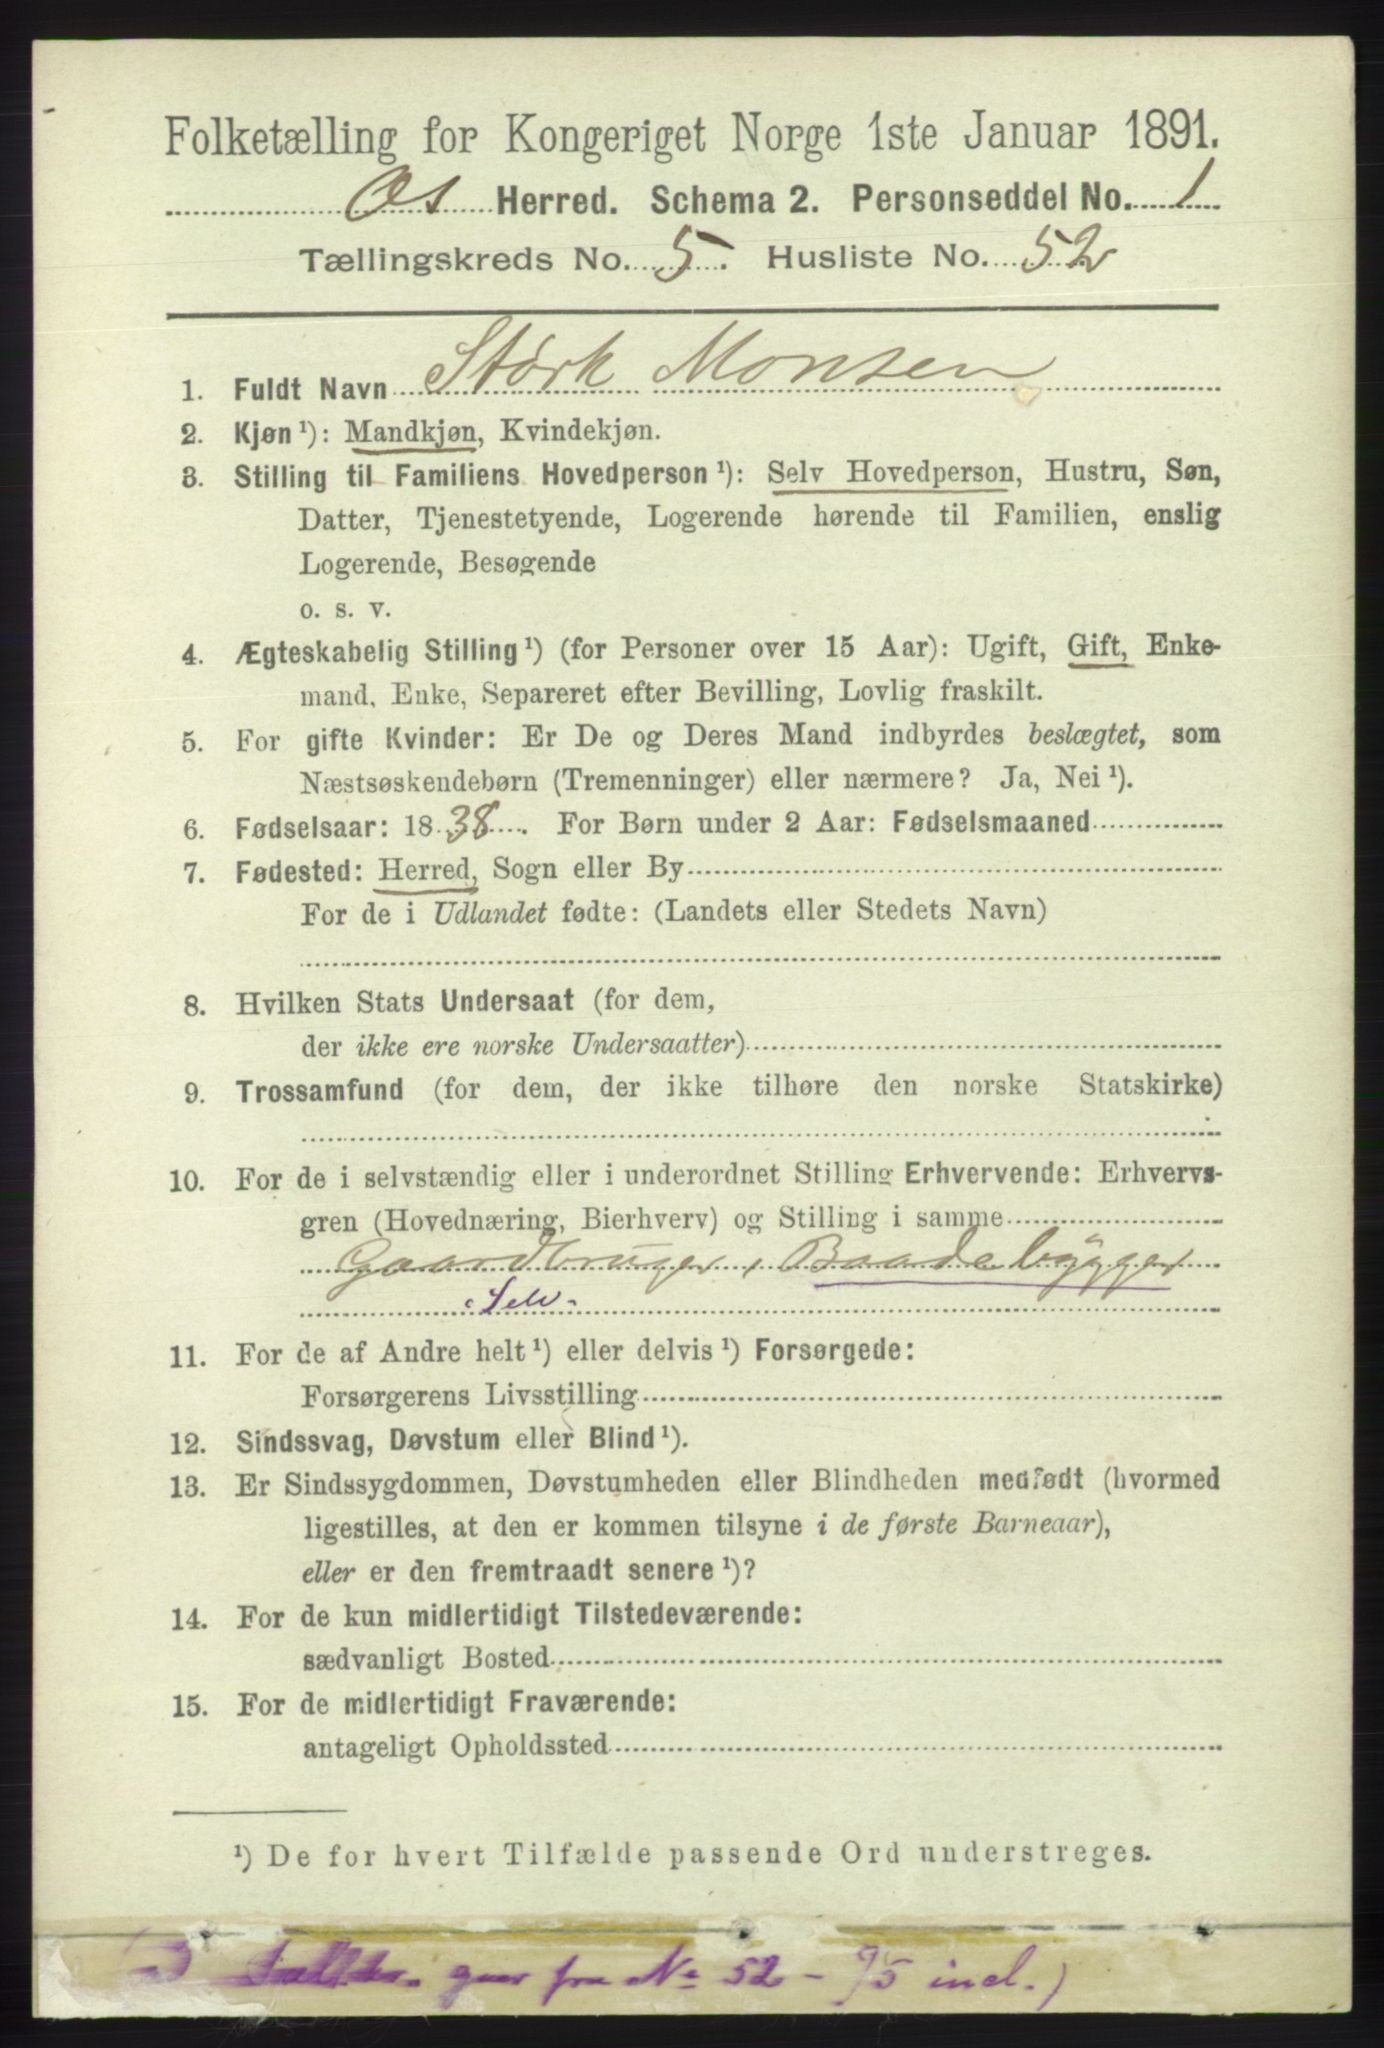 Folketælling for Kongeriget Norge 1ste Januar 1891.
Os Herred. Schema 2. Personseddel No. 1
Tællingskreds No. 5. Husliste No. 52
1. Fuldt Navn Størk Monsen
2. Kjøn ¹): Mandkjøn, Kvindekjøn.
3. Stilling til Familiens Hovedperson ¹): Selv Hovedperson, Hustru, Søn,
Datter, Tjenestetyende, Logerende hørende til Familien, enslig
Logerende, Besøgende
o. s. v.
4. Ægteskabelig Stilling ¹) (for Personer over 15 Aar): Ugift, Gift, Enke-
mand, Enke, Separeret efter Bevilling, Lovlig fraskilt.
5. For gifte Kvinder: Er De og Deres Mand indbyrdes beslægtet, som
Næstsøskendebørn (Tremenninger) eller nærmere? Ja, Nei ¹).
6. Fødselsaar: 1838. For Børn under 2 Aar: Fødselsmaaned
7. Fødested: Herred, Sogn eller By
For de i Udlandet fødte: (Landets eller Stedets Navn)
8. Hvilken Stats Undersaat (for dem,
der ikke ere norske Undersaatter)
9. Trossamfund (for dem, der ikke tilhøre den norske Statskirke)
10. For de i selvstændig eller i underordnet Stilling Erhvervende: Erhvervs-
gren (Hovednæring, Bierhverv) og Stilling i samme
Gaardbruger, Baadebygger
Selv
11. For de af Andre helt ¹) eller delvis ¹) Forsørgede:
Forsørgerens Livsstilling
12. Sindssvag, Døvstum eller Blind ¹).
13. Er Sindssygdommen, Døvstumheden eller Blindheden medfødt (hvormed
ligestilles, at den er kommen tilsyne i de første Barneaar),
eller er den fremtraadt senere ¹)?
14. For de kun midlertidigt Tilstedeværende:
sædvanligt Bosted
15. For de midlertidigt Fraværende:
antageligt Opholdssted
¹) De for hvert Tilfælde passende Ord understreges.
gaar fra No 52 - 75 incl.)